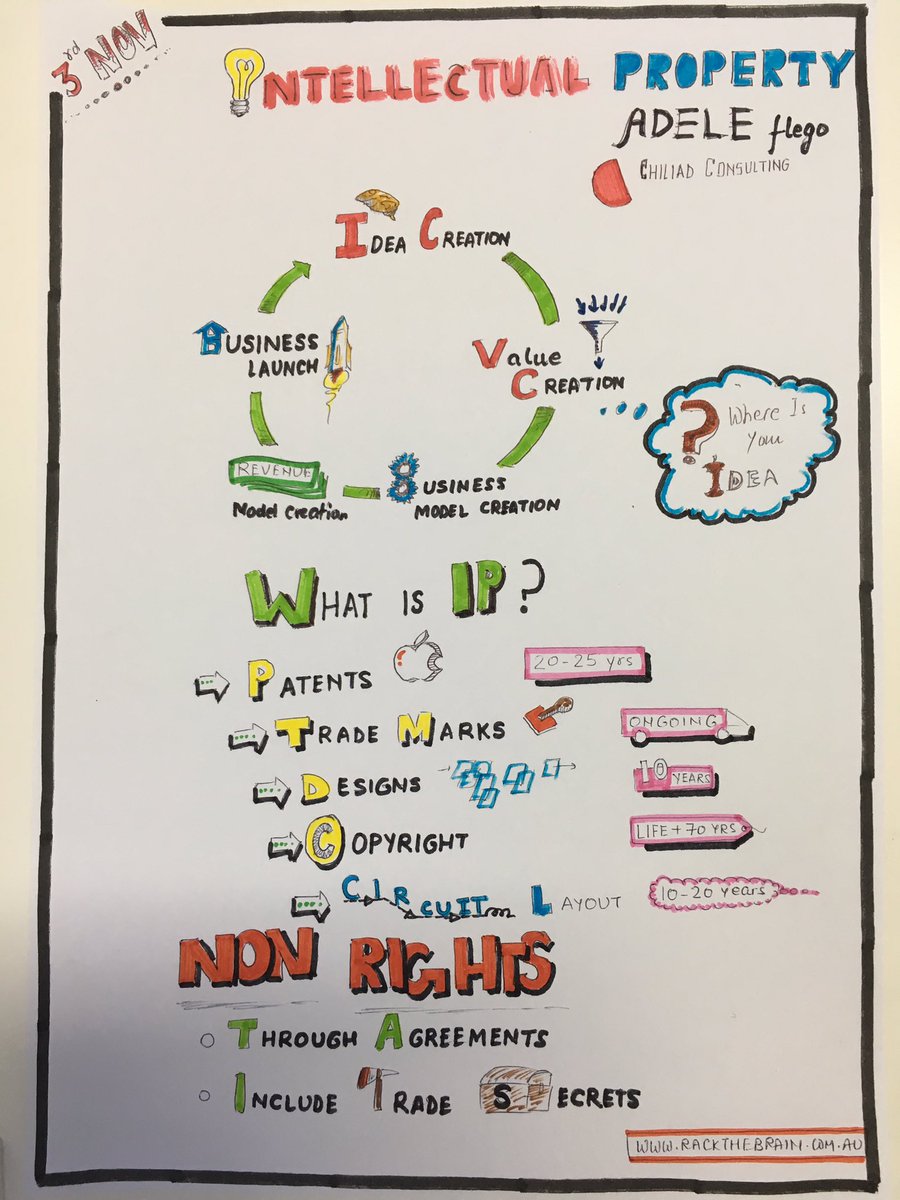 3rd NOV
INTELLECTUAL PROPERTY
ADELE flego
CHILIAD CONSULTING
IDEA CREATION
BUSINESS
LAUNCH
Value
CREATION
? Where Is
Your
IDEA
REVENUE
Model Creation
BUSINESS
MODEL CREATION
WHAT IS IP?
PATENTS 20-25 yrs
TRADE MARKS ONGOING
DESIGNS 10 YEARS
COPYRIGHT LIFE + 70 YRS
CIRCUIT LAYOUT 10-20 years
NON RIGHTS
THROUGH AGREEMENTS
INCLUDE TRADE SECRETS
WWW.RACKTHEBRAIN.COM.AU